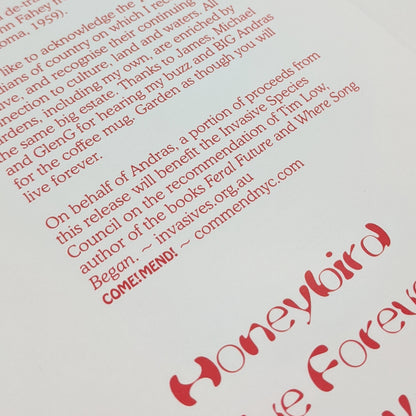 n Fahey
oma, 1959).
like to acknowledge the
dians of country on which I rec
ive, and recognise their continuing
nection to culture, land and waters. All
rdens, including my own, are enriched by
the same big estate. Thanks to James, Michael
and GlenG for hearing my buzz and BIG Andras
for the coffee mug. Garden as though you will
live forever.
On behalf of Andras, a portion of proceeds from
this release will benefit the Invasive Species
Council on the recommendation of Tim Low,
author of the books Feral Future and Where Song
Began. ~ invasives.org.au
COME!MEND! ~ commendnyc.com
Honeybird
ve Foreve